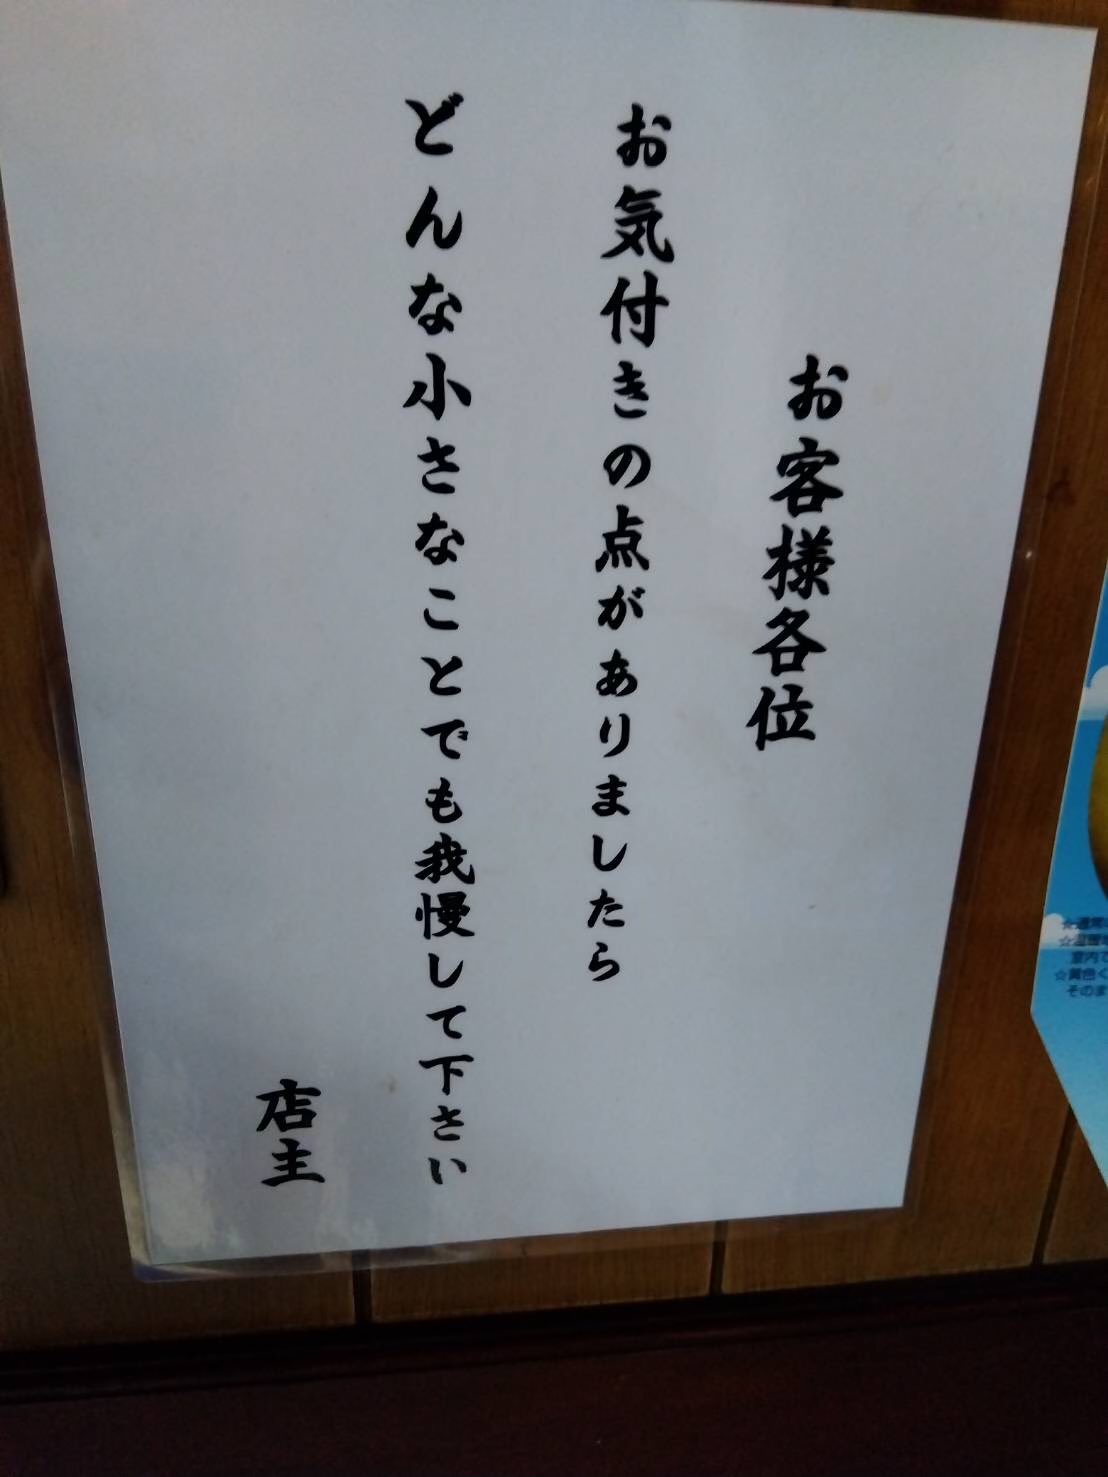 お客様各位
お気付きの点がありましたら
どんな小さなことでも我慢して下さい
店主
☆通常
☆温暖
室内で
☆黄色く
そのま